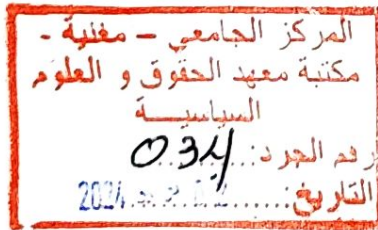 المركز الجامعي - مغنية -
مكتبة معهد الحقوق و العلوم
السياسيــــة
رقم الجرد: 034
التاريخ: 2024